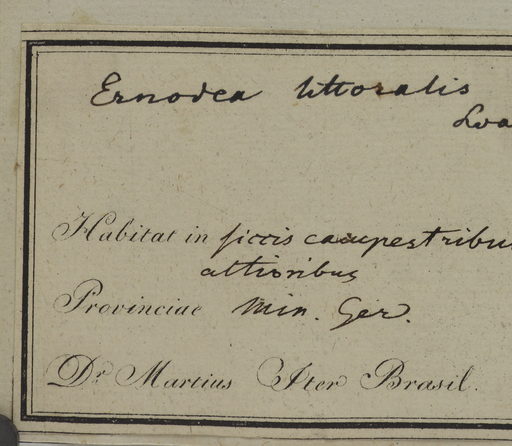 Ernodea littoralis
Habitat in siccis campestribu
altioribus
Provinciae Min. Ger.
Dr. Martius Iter Brasil.